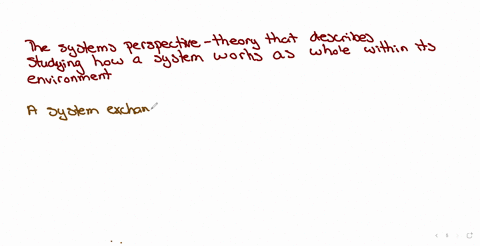 The systems perspective - theory that describes
studying how a system works as whole within its
environment
A system exchan